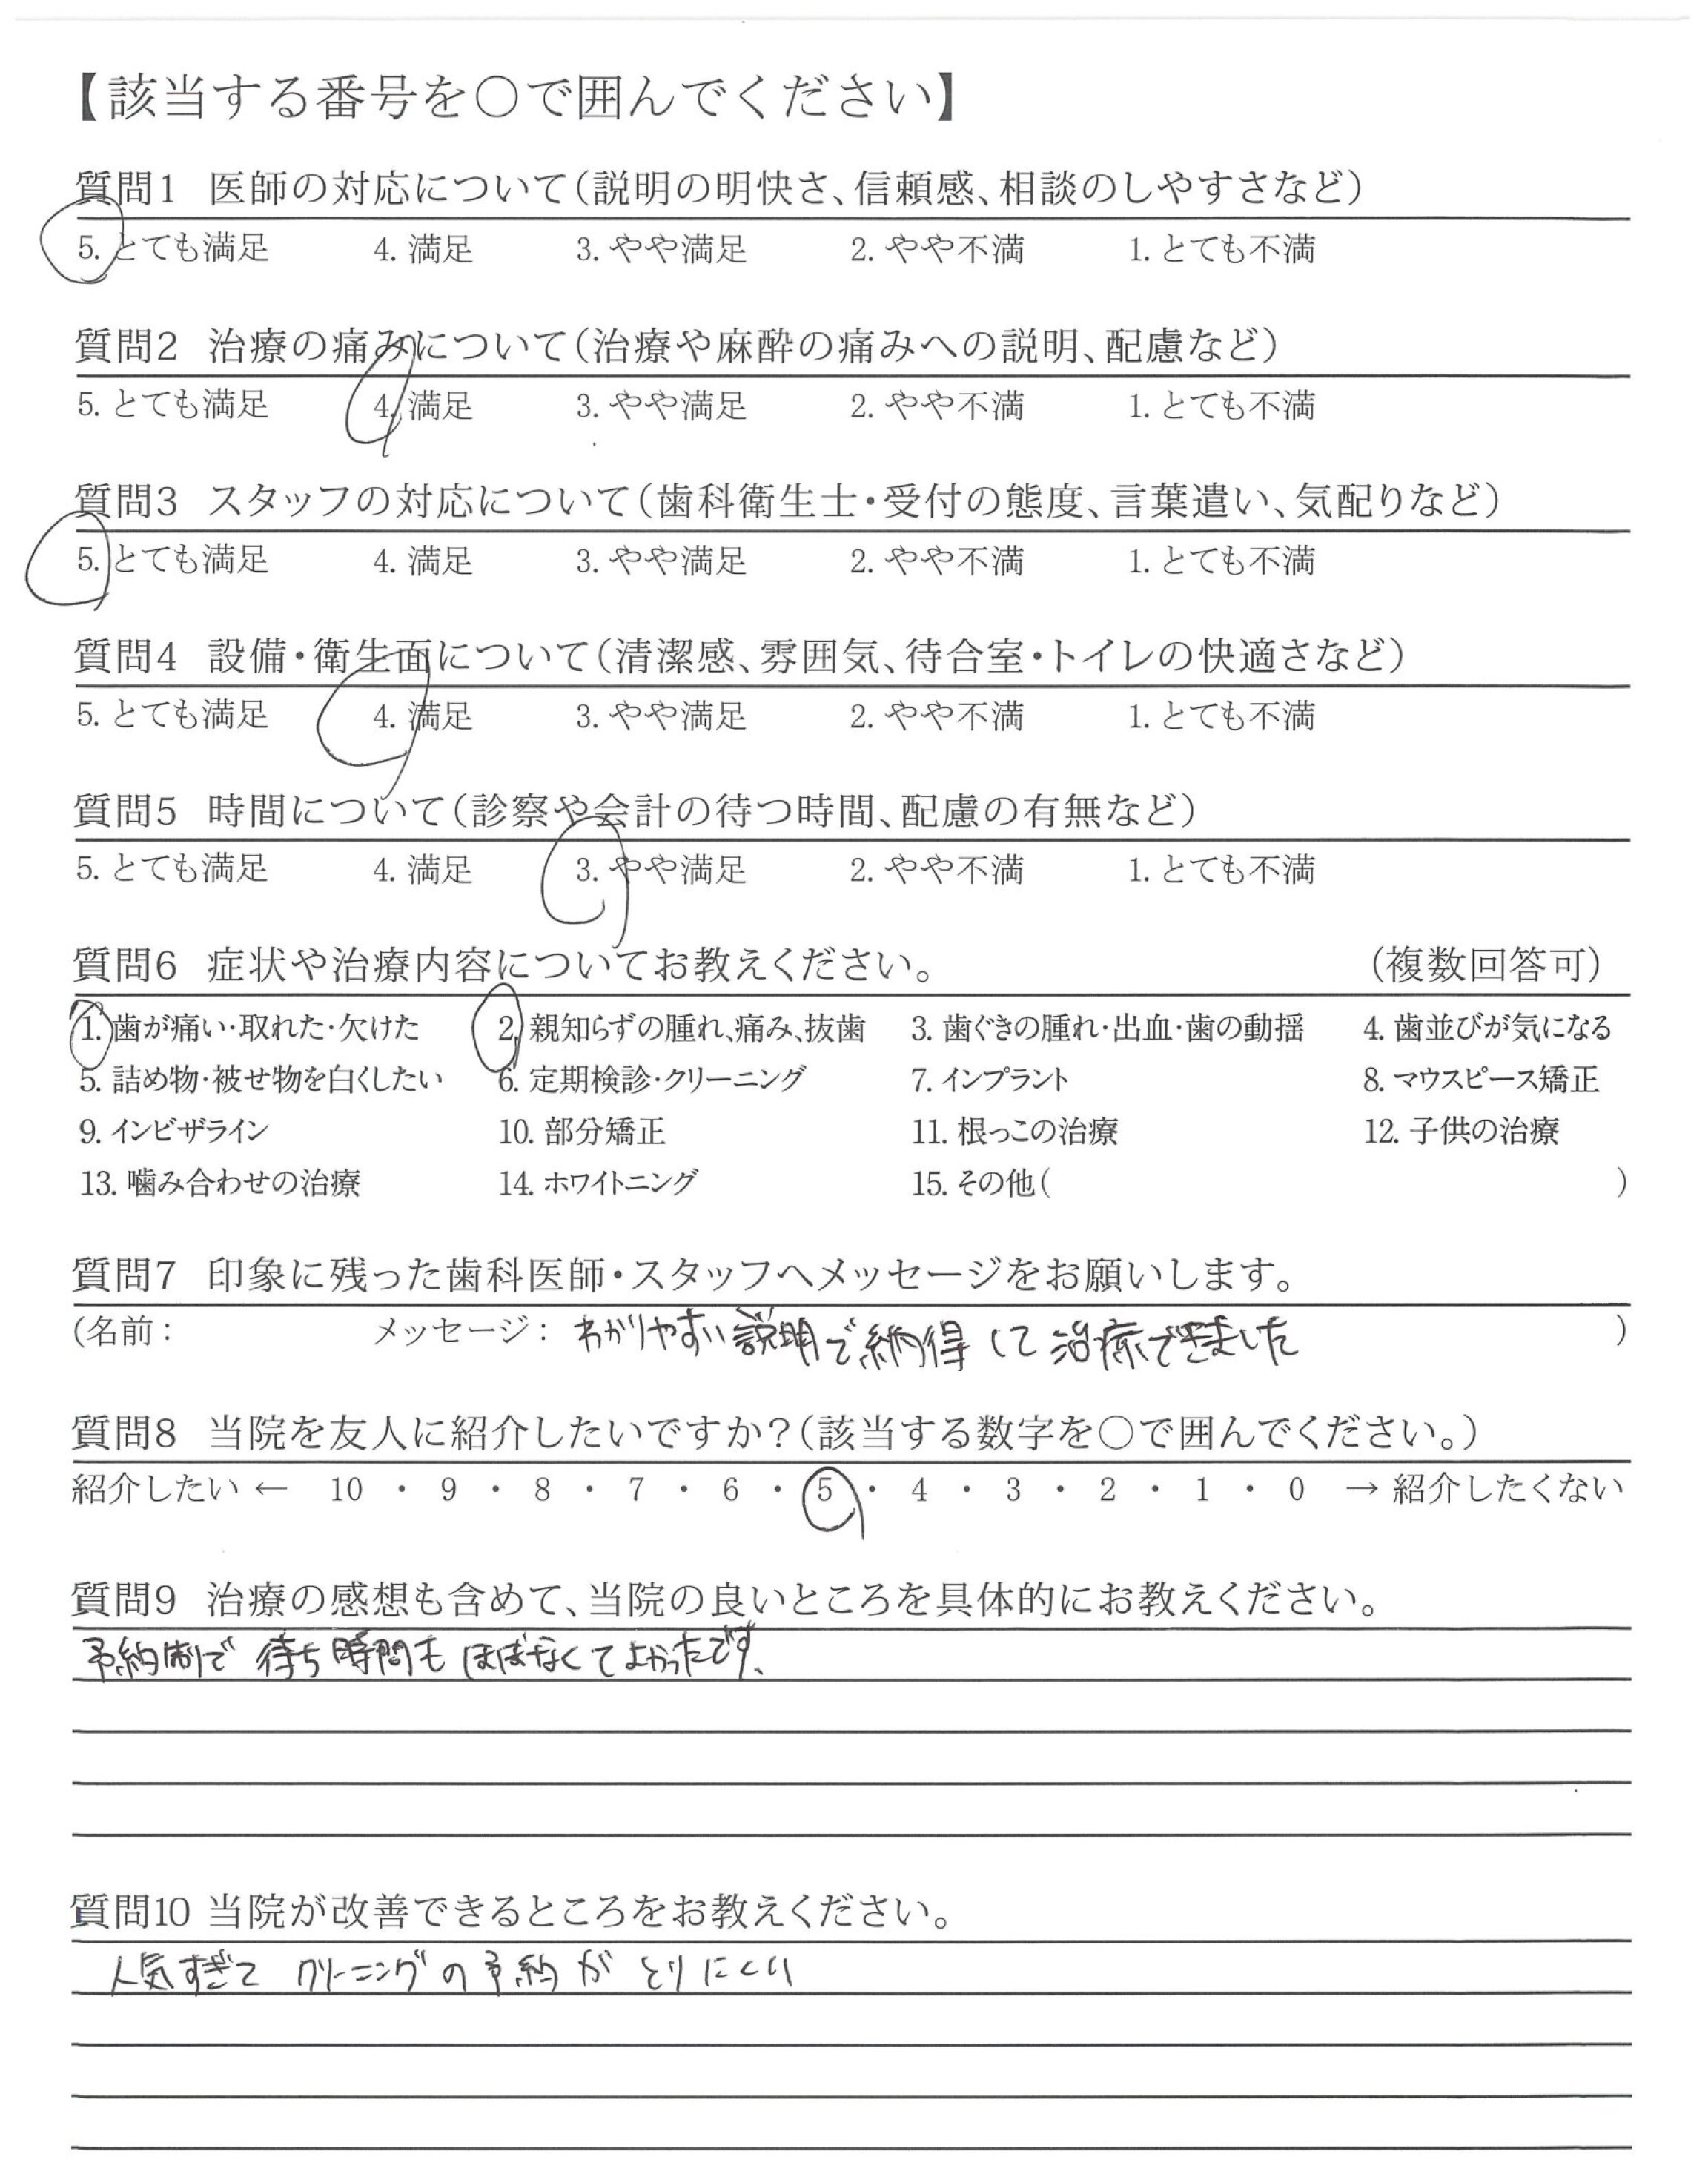 【該当する番号を〇で囲んでください】
質問1 医師の対応について（説明の明快さ、信頼感、相談のしやすさなど）
5. とても満足 4. 満足 3. やや満足 2. やや不満 1. とても不満
質問2 治療の痛みについて（治療や麻酔の痛みへの説明、配慮など）
5. とても満足 4. 満足 3. やや満足 2. やや不満 1. とても不満
質問3 スタッフの対応について（歯科衛生士・受付の態度、言葉遣い、気配りなど）
5. とても満足 4. 満足 3. やや満足 2. やや不満 1. とても不満
質問4 設備・衛生面について（清潔感、雰囲気、待合室・トイレの快適さなど）
5. とても満足 4. 満足 3. やや満足 2. やや不満 1. とても不満
質問5 時間について（診察や会計の待つ時間、配慮の有無など）
5. とても満足 4. 満足 3. やや満足 2. やや不満 1. とても不満
質問6 症状や治療内容についてお教えください。 （複数回答可）
1. 歯が痛い・取れた・欠けた 2. 親知らずの腫れ、痛み、抜歯 3. 歯ぐきの腫れ・出血・歯の動揺 4. 歯並びが気になる
5. 詰め物・被せ物を白くしたい 6. 定期検診・クリーニング 7. インプラント 8. マウスピース矯正
9. インビザライン 10. 部分矯正 11. 根っこの治療 12. 子供の治療
13. 噛み合わせの治療 14. ホワイトニング 15. その他（ ）
質問7 印象に残った歯科医師・スタッフへメッセージをお願いします。
（名前： メッセージ： わかりやすい説明で納得して治療できました ）
質問8 当院を友人に紹介したいですか？（該当する数字を〇で囲んでください。）
紹介したい ← 10 ・ 9 ・ 8 ・ 7 ・ 6 ・ 5 ・ 4 ・ 3 ・ 2 ・ 1 ・ 0 → 紹介したくない
質問9 治療の感想も含めて、当院の良いところを具体的にお教えください。
予約制で待ち時間もほぼなくてよかったです、
質問10 当院が改善できるところをお教えください。
人気すぎて クリーニングの予約が とりにくい